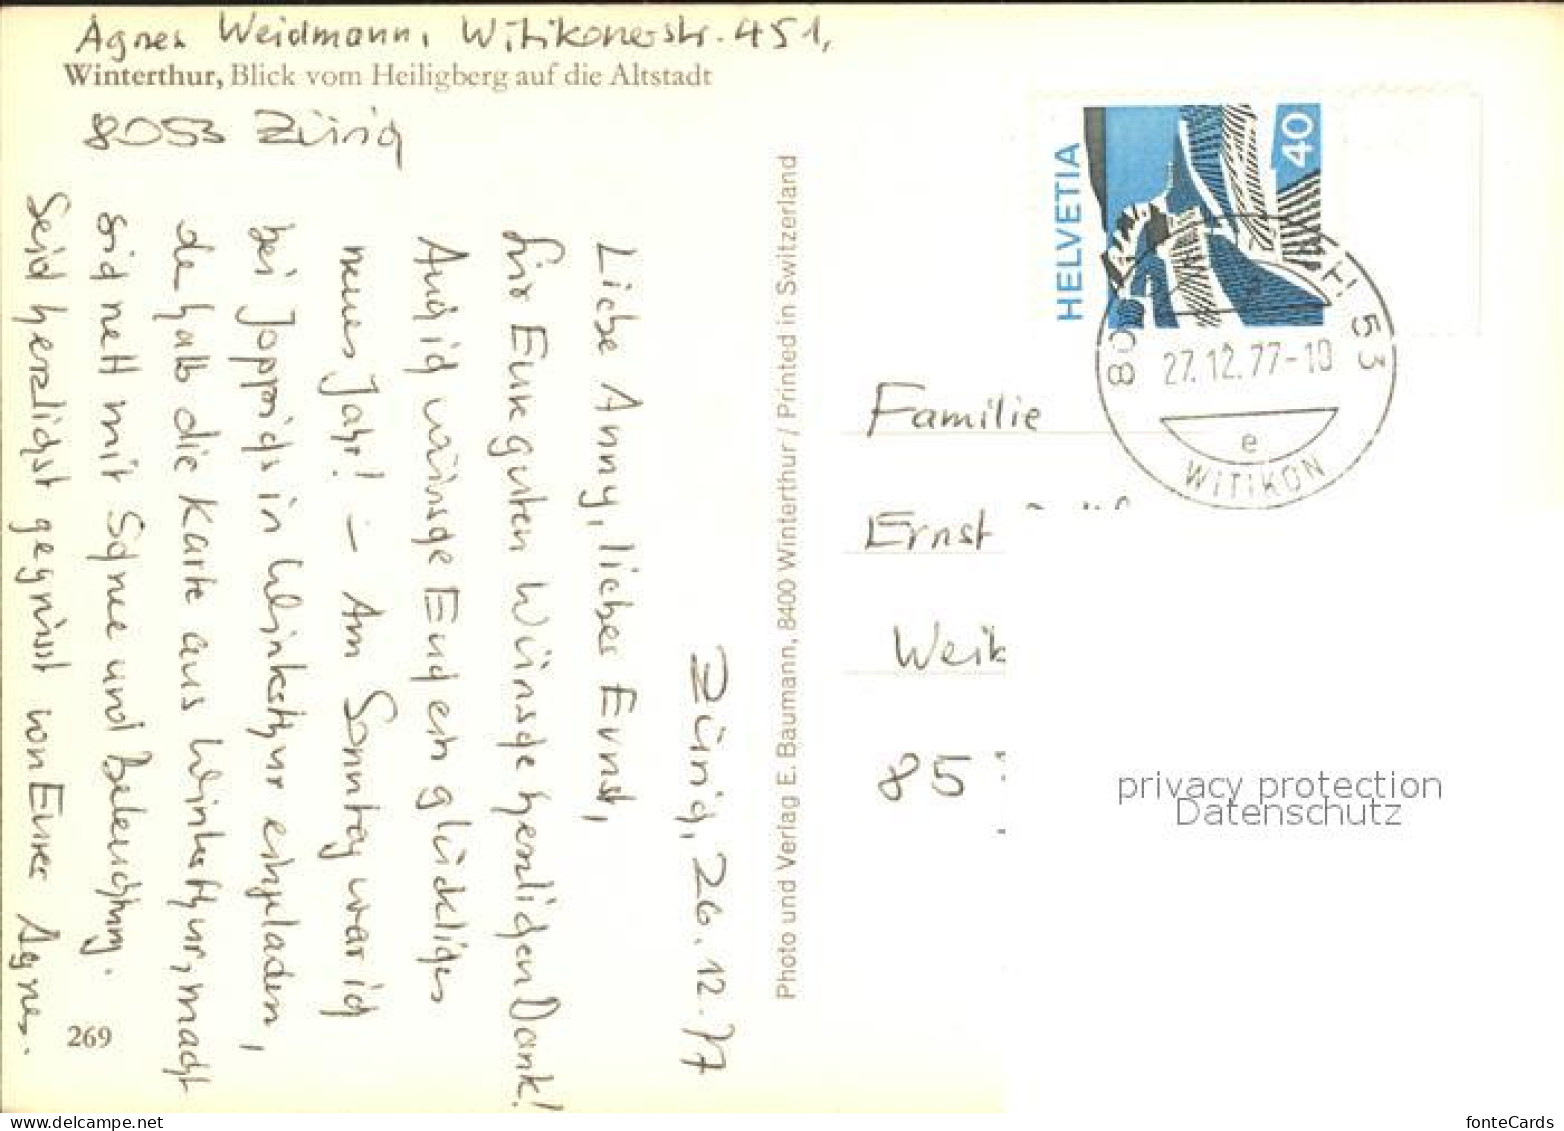 Agnes Weidmann, Witikonerstr. 451,
Winterthur, Blick vom Heiligberg auf die Altstadt
8053 Zürich
Zürich, 26.12.77
Liebe Anny, lieber Ernst,
für Eure guten Wünsche herzlichen Dank!
Auch ich wünsche Euch ein glückliches
neues Jahr! – Am Sonntag war ich
bei in Winterthur eingeladen,
deshalb die Karte aus Winterthur, macht
sich nett mit Schnee und Beleuchtung.
Seid herzlichst gegrüsst von Eurer Agnes.
269
Photo und Verlag E. Baumann, 8400 Winterthur / Printed in Switzerland
HELVETIA
40
8053
27.12.77-10
e
WITIKON
Familie
Ernst
Weik
85
privacy protection
Datenschutz
www.delcampe.net
fonteCards